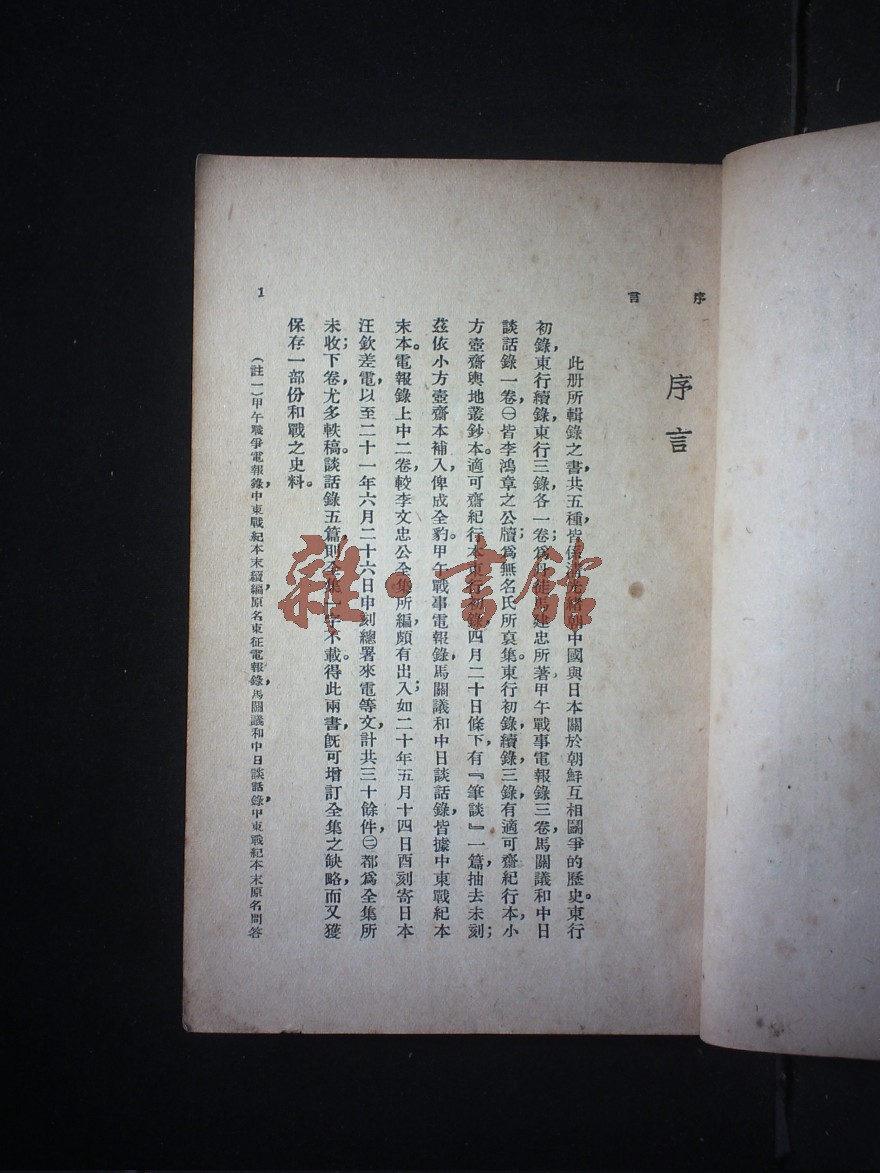 序言
序言
此册所輯錄之書，共五種，皆係清光緒朝中國與日本關於朝鮮互相鬭爭的歷史。東行
初錄，東行續錄，東行三錄，各一卷，爲丹徒馬建忠所著；甲午戰事電報錄三卷，馬關議和中日
談話錄一卷㊀皆李鴻章之公牘，爲無名氏所裒集。東行初錄，續錄，三錄，有適可齋紀行本，小
方壺齋輿地叢鈔本。適可齋紀行本東行初錄，四月二十日條下，有『筆談』一篇，抽去未刻；
茲依小方壺齋本補入，俾成全豹。甲午戰事電報錄，馬關議和中日談話錄，皆據中東戰紀本
末本。電報錄上中二卷，較李文忠公全集所編，頗有出入；如二十年五月十四日酉刻寄日本
汪欽差電，以至二十一年六月二十六日申刻總署來電等文，計共三十餘件，㊁都爲全集所
未收；下卷，尤多軼稿。談話錄五篇，則全集一字不載。得此兩書，旣可增訂全集之缺略，而又獲
保存一部份和戰之史料。
（註一）甲午戰爭電報錄，中東戰紀本末續編原名東征電報錄，馬關議和中日談話錄，中東戰紀本末原名問答
1
雜·書館